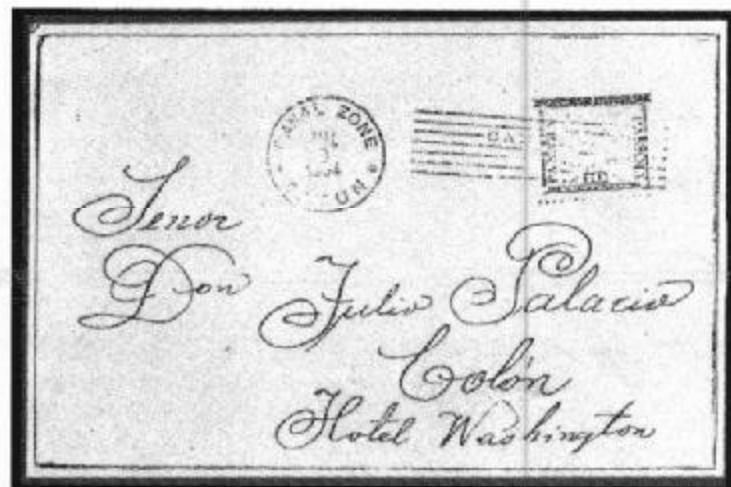 CANAL ZONE
JUL
3
1904
Senor
Don Julio Palacio
Colón
Hotel Washington
PANAMA
PANAMA